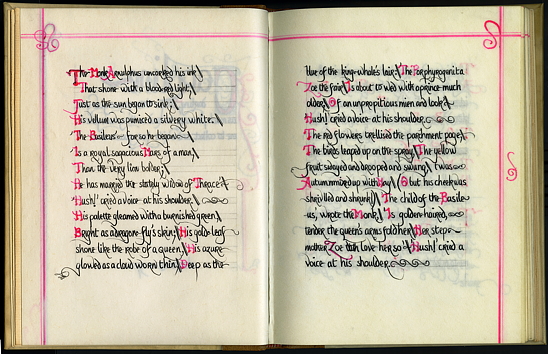 The Monk Arnulphus uncorked his ink
That shone with a blood-red light,
Just as the sun began to sink;
His vellum was pumiced a silvery white.
The Basileus - for so he began
Is a royal sagacious Mars of a man,
Than the very lion bolder;
He has married the stately widow of Thrace
Hush! cried a voice at his shoulder.
His palette gleamed with a burnished green,
Bright as a dragon-fly's skin; His gold-leaf
shone like the robe of a queen, His azure
glowed as a cloud worn thin, Deep as the
blue of the king-whale's lair: The Porphyrogenita
Zoe the fair Is about to wed with a prince much
older, Of an unpropitious mien and look
Hush! cried a voice at his shoulder.
The red flowers trellised the parchment page;
The birds leaped up on the spray, The yellow
fruit swayed and drooped and swung, Twas
Autumn mixed up with May, O but his cheek was
shrivelled and shrunk! The child of the Basile
us, wrote the Monk, Is golden-haired,
tender the queen's arms fold her. Her step-
mother Zoe doth love her so Hush! cried a
voice at his shoulder.